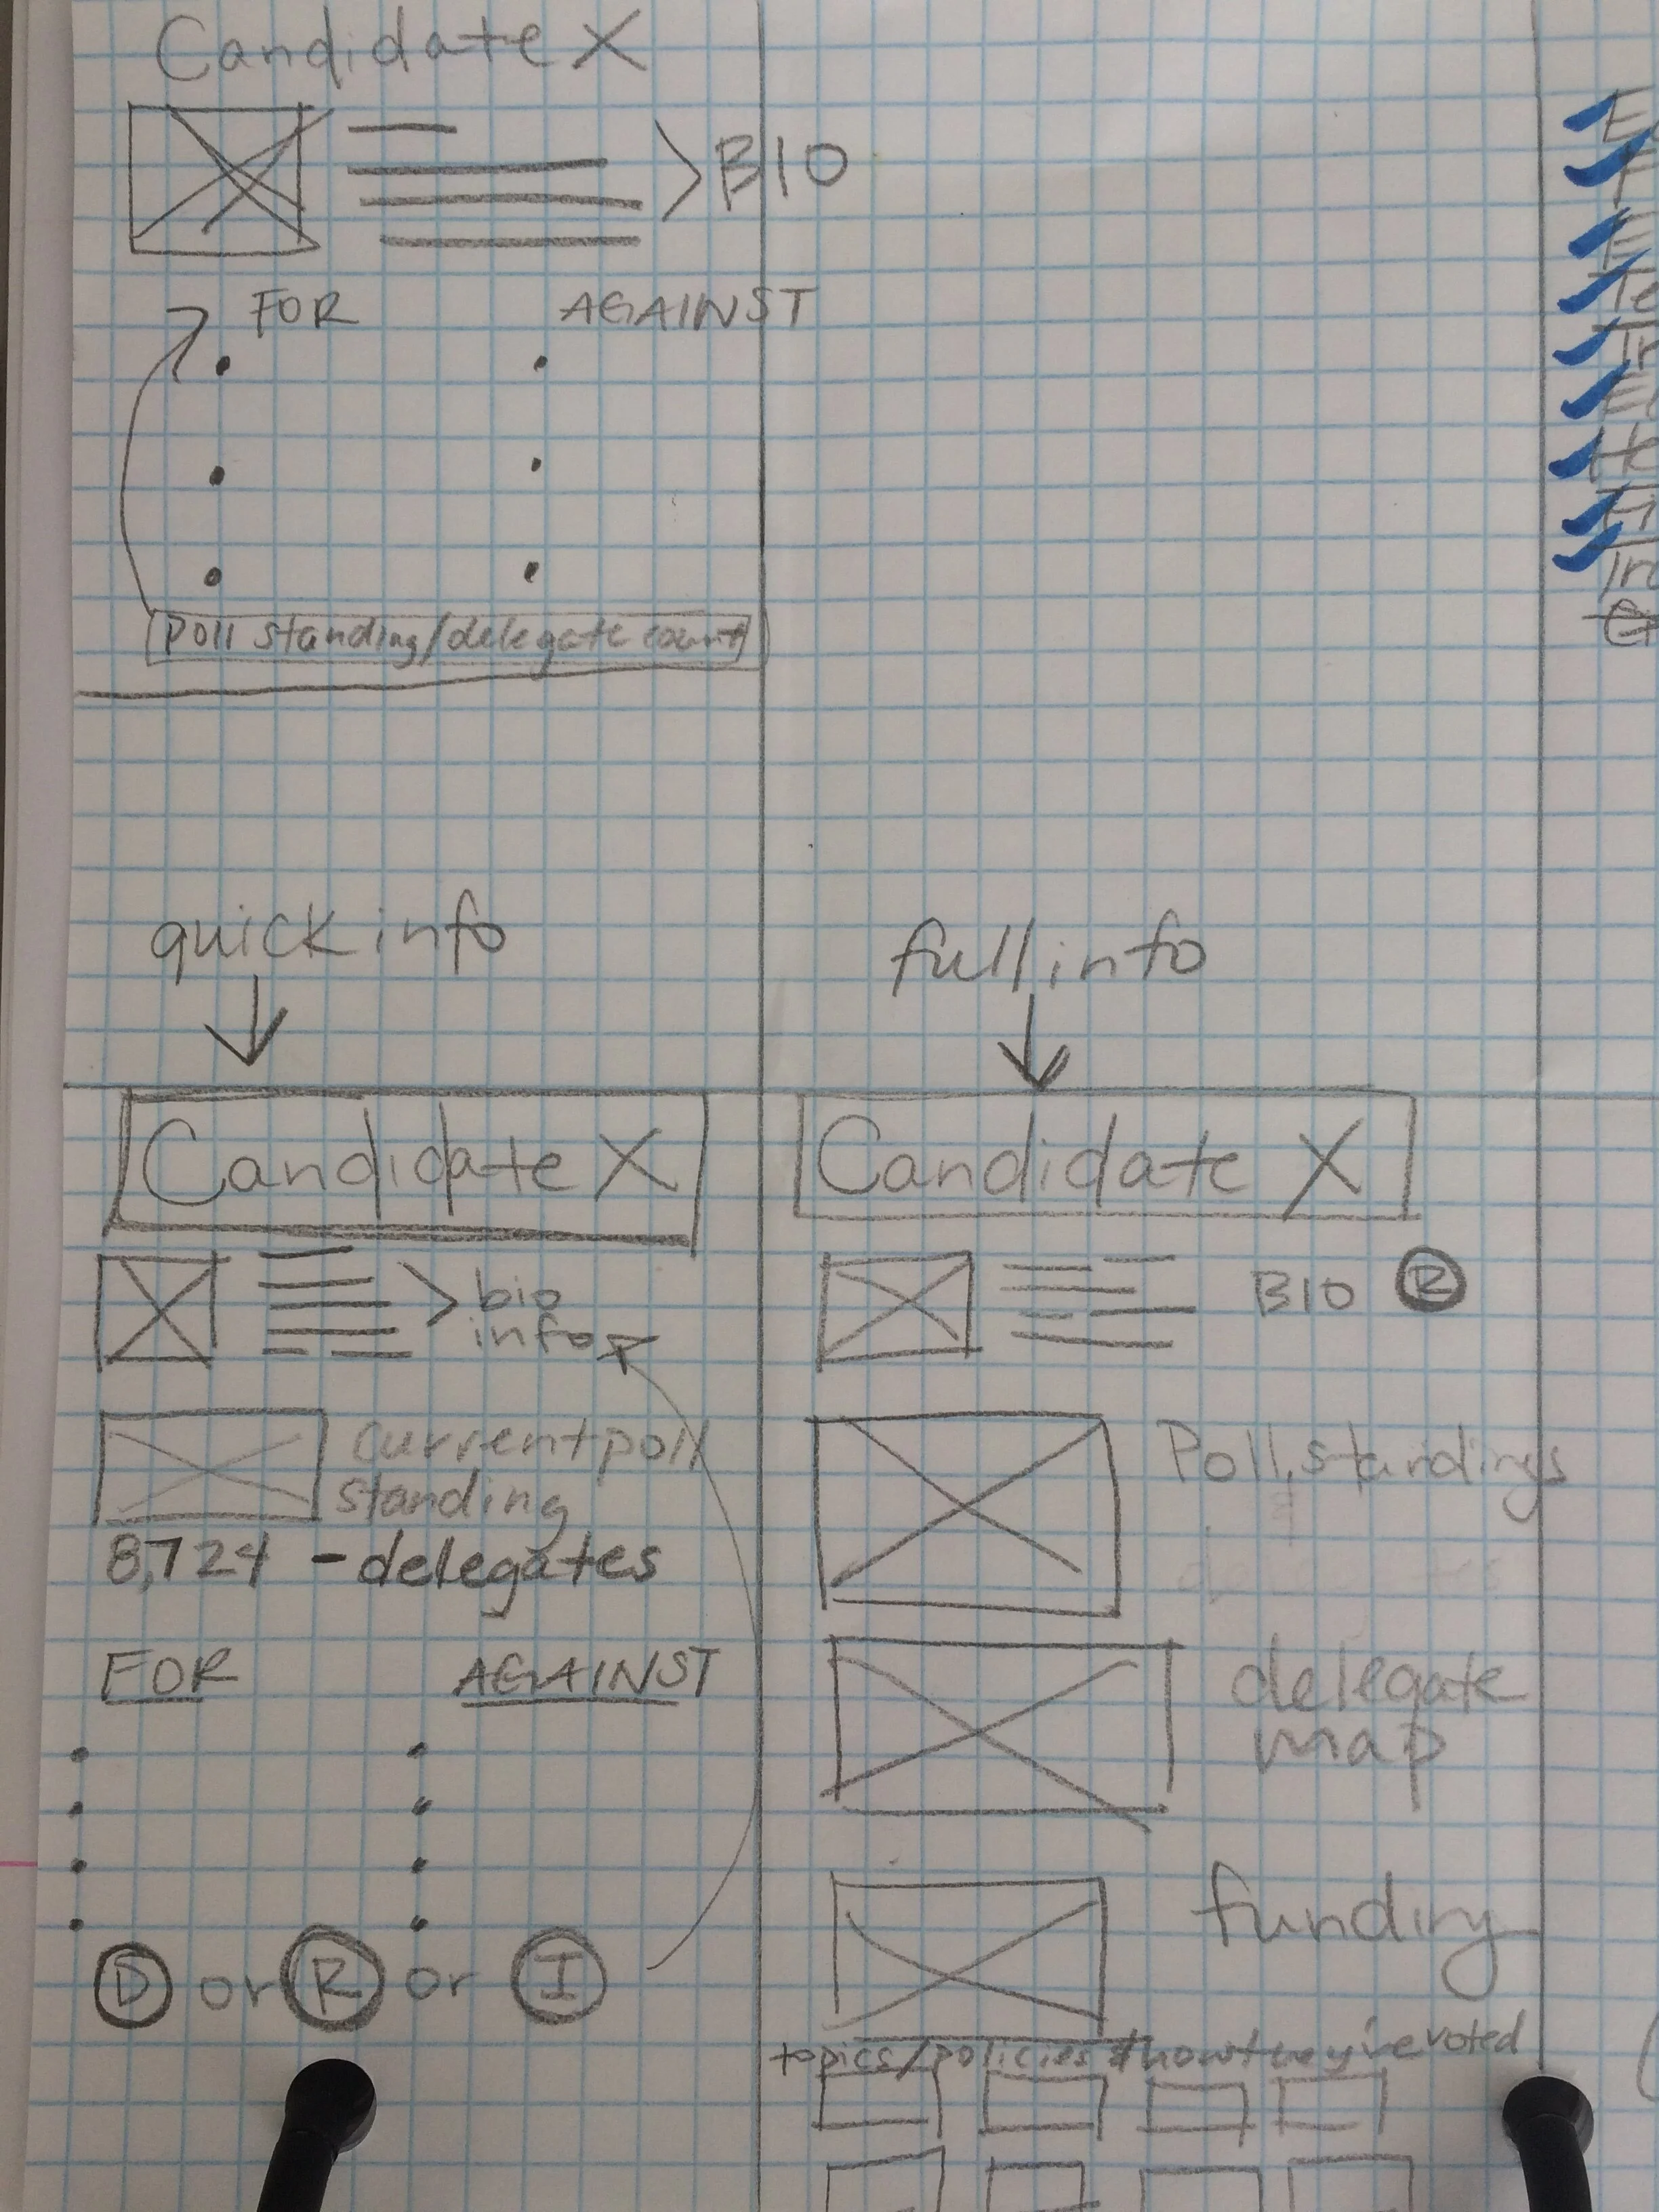 Candidate X
>BIO
FOR
AGAINST
Poll standing/delegate count
quick info
Candidate X
bio
info
current poll
standing
8,724 - delegates
FOR
AGAINST
D or R or I
full info
Candidate X
BIO R
Poll standings
delegate
map
funding
topics/policies & how they've voted